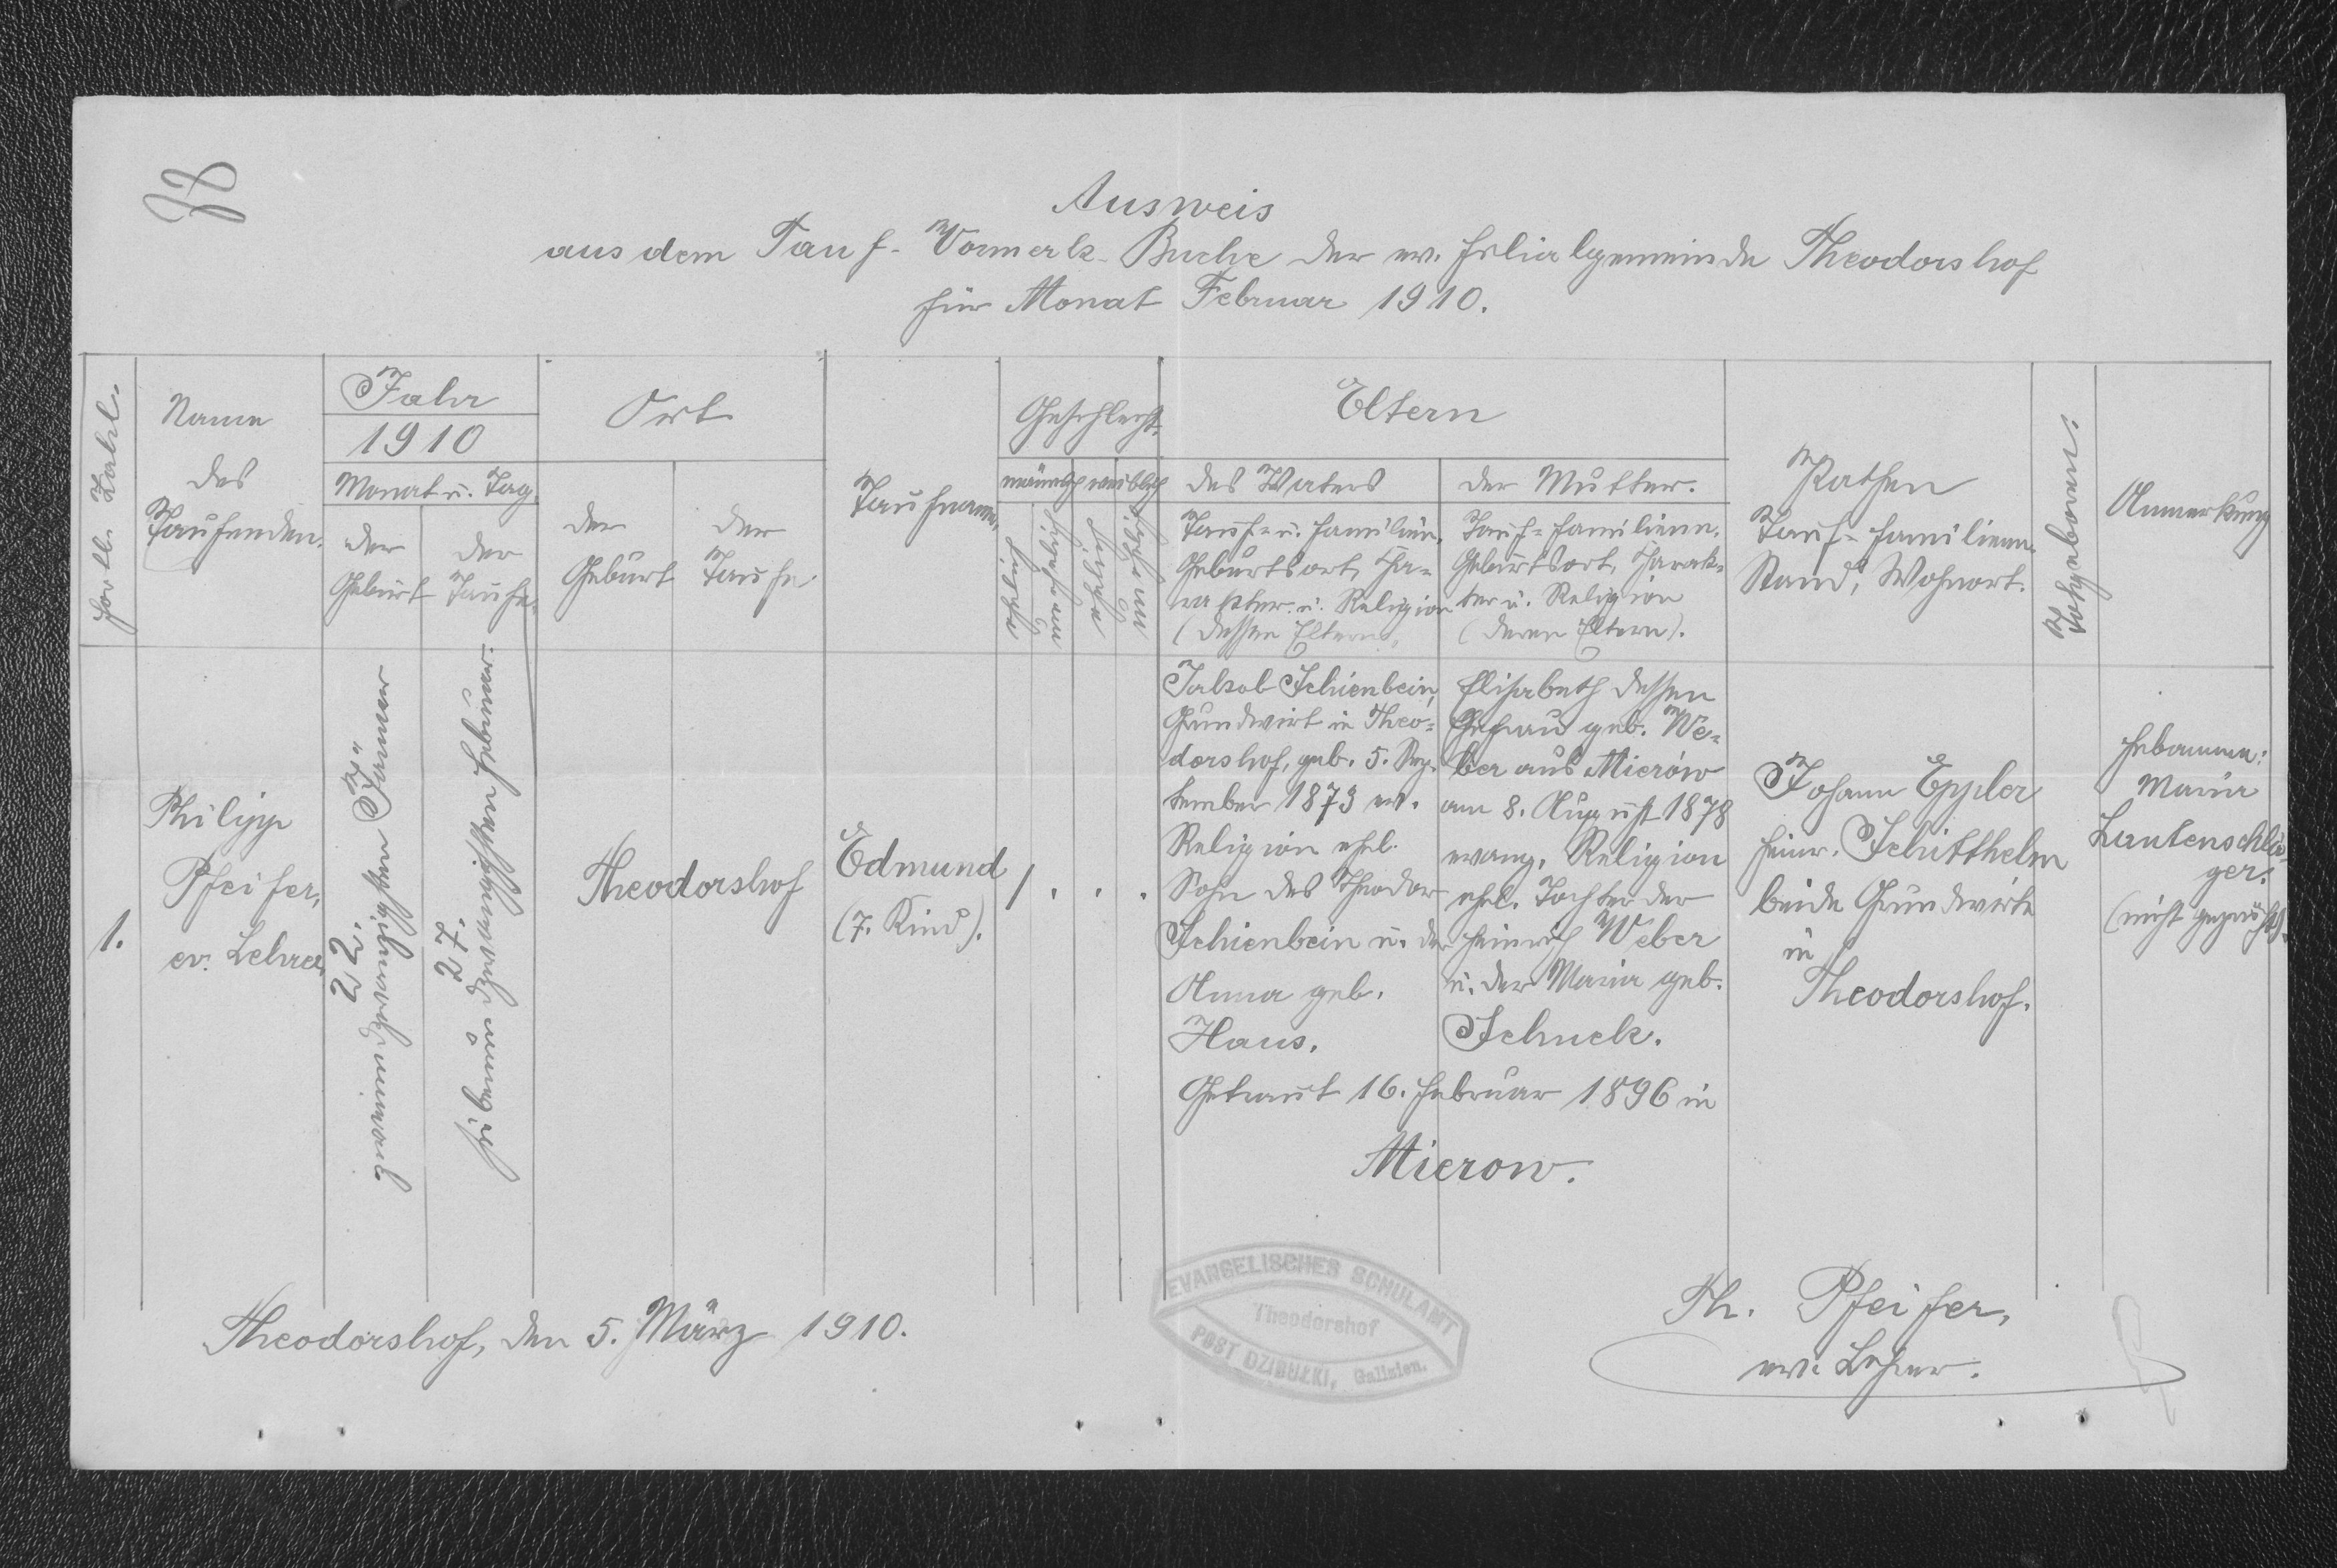 Ausweis
aus dem Tauf-Vormerk-Buche der ev. Filialgemeinde Theodorshof
für Monat Februar 1910.
Fortl. Zahl.
Name
des
Taufenden.
Jahr
1910
Monat u. Tag
der
Geburt
der
Taufe.
Ort
der
Geburt
der
Taufe
Taufname.
Geschlecht.
männlich
weiblich
Eltern
des Vaters
Tauf- u. Familien.
Geburtsort, Cha-
rakter u. Religion
(dessen Eltern.
der Mutter.
Tauf- Familienn.
Geburtsort, Charak-
ter u. Religion
(deren Eltern).
Pathen
Tauf- Familienn.
Stand, Wohnort.
Totgeboren.
Anmerkung
1.
Philipp
Pfeifer,
ev. Lehrer
22.
zweiundzwanzigsten Jänner
27.
siebenundzwanzigsten Februar.
Theodorshof
Edmund
(7. Kind).
1 . . .
Jakob Schienbein,
Grundwirt in Theo-
dorshof, geb. 5. Sep-
tember 1873 ev.
Religion ehel.
Sohn des Theodor
Schienbein u. der
Anna geb.
Haus.
Elisabeth dessen
Ehefrau geb. We-
ber aus Mierów
am 8. August 1878
evang. Religion
ehel. Tochter der
Heinrich Weber
u. der Maria geb.
Schuck.
Getraut 16. Februar 1896 in
Mierow.
Johann Eppler
Heinr. Schitthelm
beide Grundwirte
in
Theodorshof.
Hebamme:
Maria
Lautenschlä-
ger.
(nicht geprüft).
Theodorshof, den 5. März 1910.
EVANGELISCHES SCHULAMT
Theodorshof
POST DZIBUŁKI, Galizien.
Ph. Pfeifer,
ev. Lehrer.